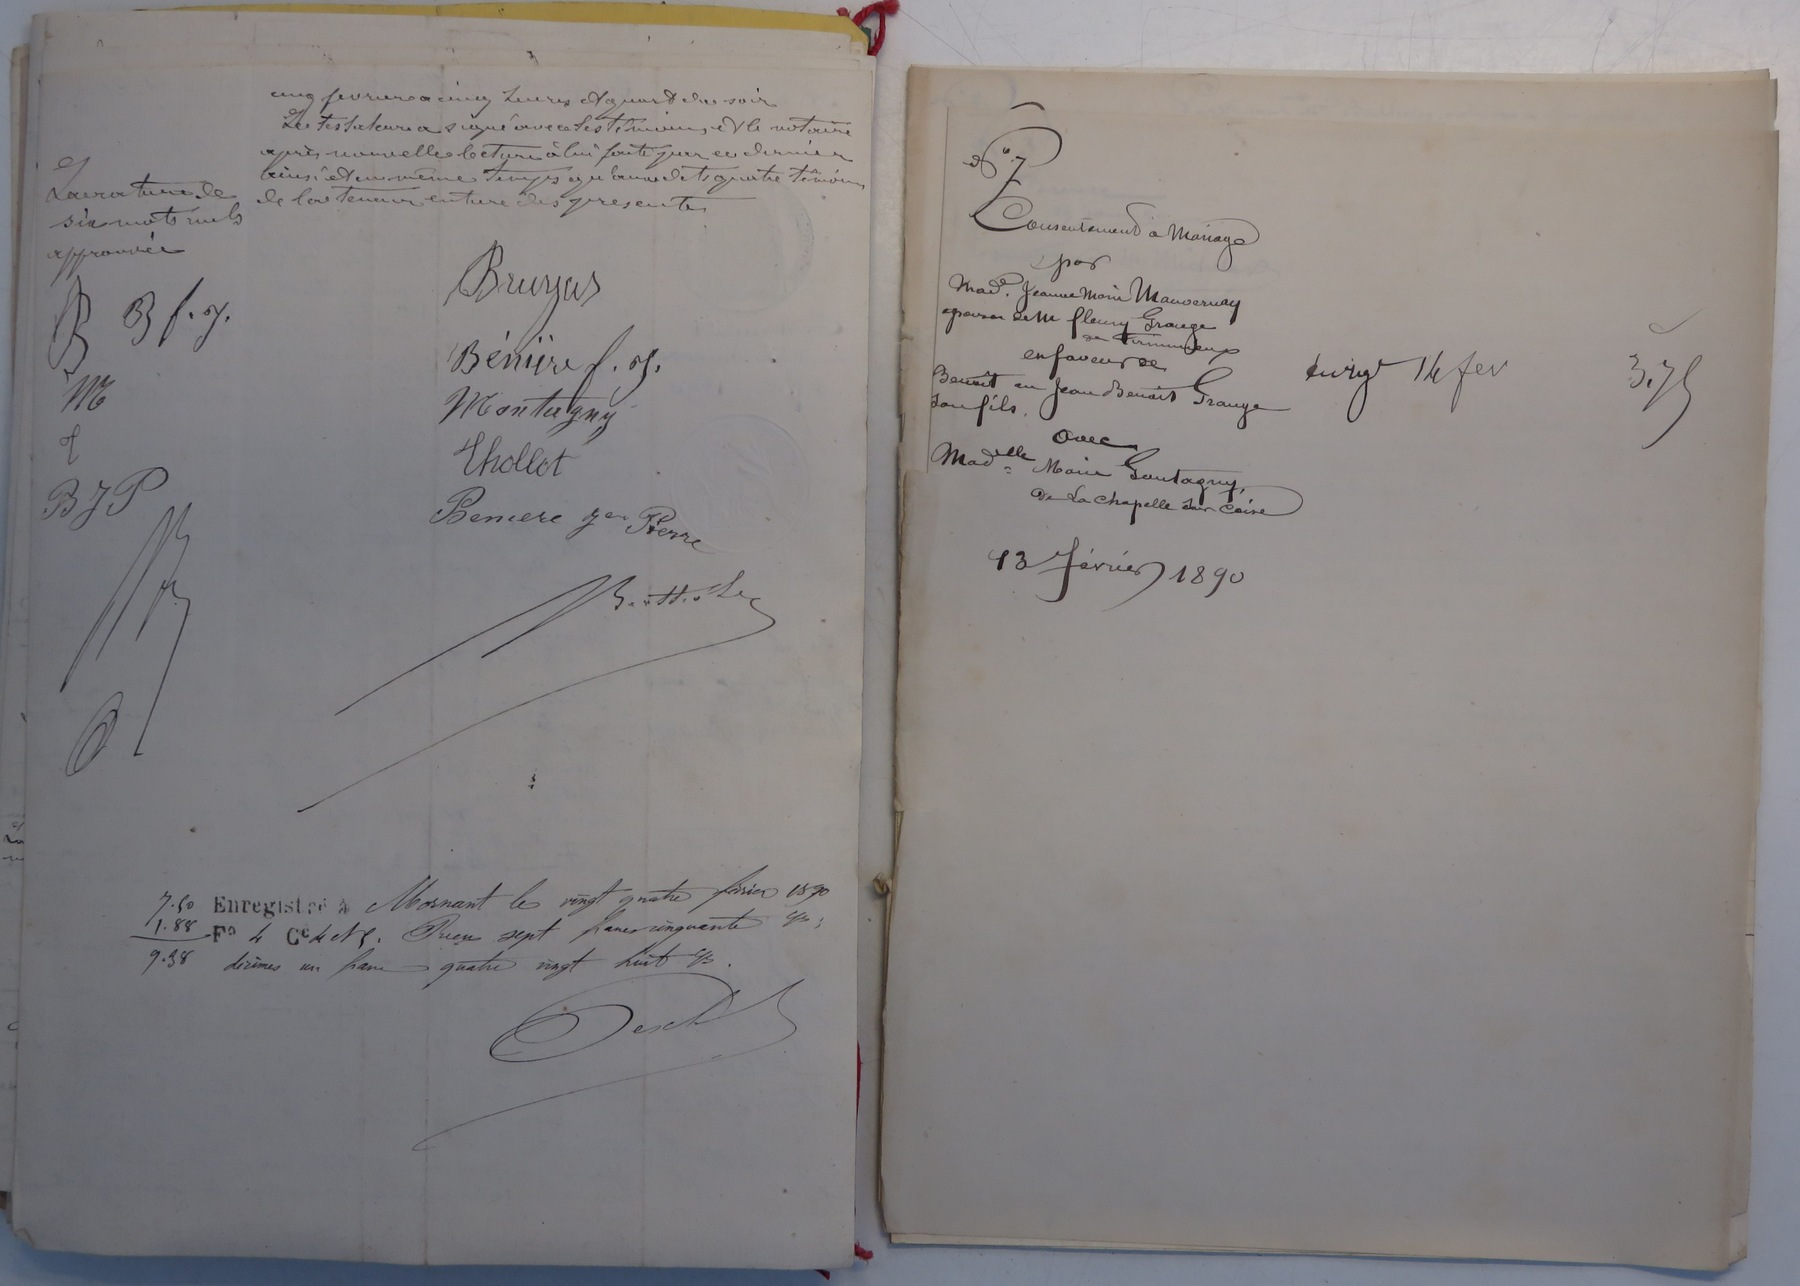 cinq février a cinq heures et quart du soir
Le testateur a signé avec les témoins et le notaire
après nouvelle lecture à lui faite par ce dernier
ainsi et en même temps qu'auxdits quatre témoins
de la teneur entière des présentes
La rature de
six mots nuls
approuvée
B B f. y.
M
B J P
Bruyas
Bénière f. y.
Montagny
Thollot
Beniere Pierre
7.50 Enregistré à Mornant le vingt quatre février 1890
1.88 Fo 4 Ce 4 et 5. Reçu sept francs cinquante cs;
9.38 décimes un franc quatre vingt huit cs.
No. 7
Consentement à Mariage
par
Made. Jeanne Marie Manvernay
épouse de M fleury Grange
de
en faveur de
Benoit ou Jean Benoit Grange
son fils.
enregt 14 fev 3.75
avec
Madelle Marie Goutagny,
de La Chapelle sur Coise
13 février 1890